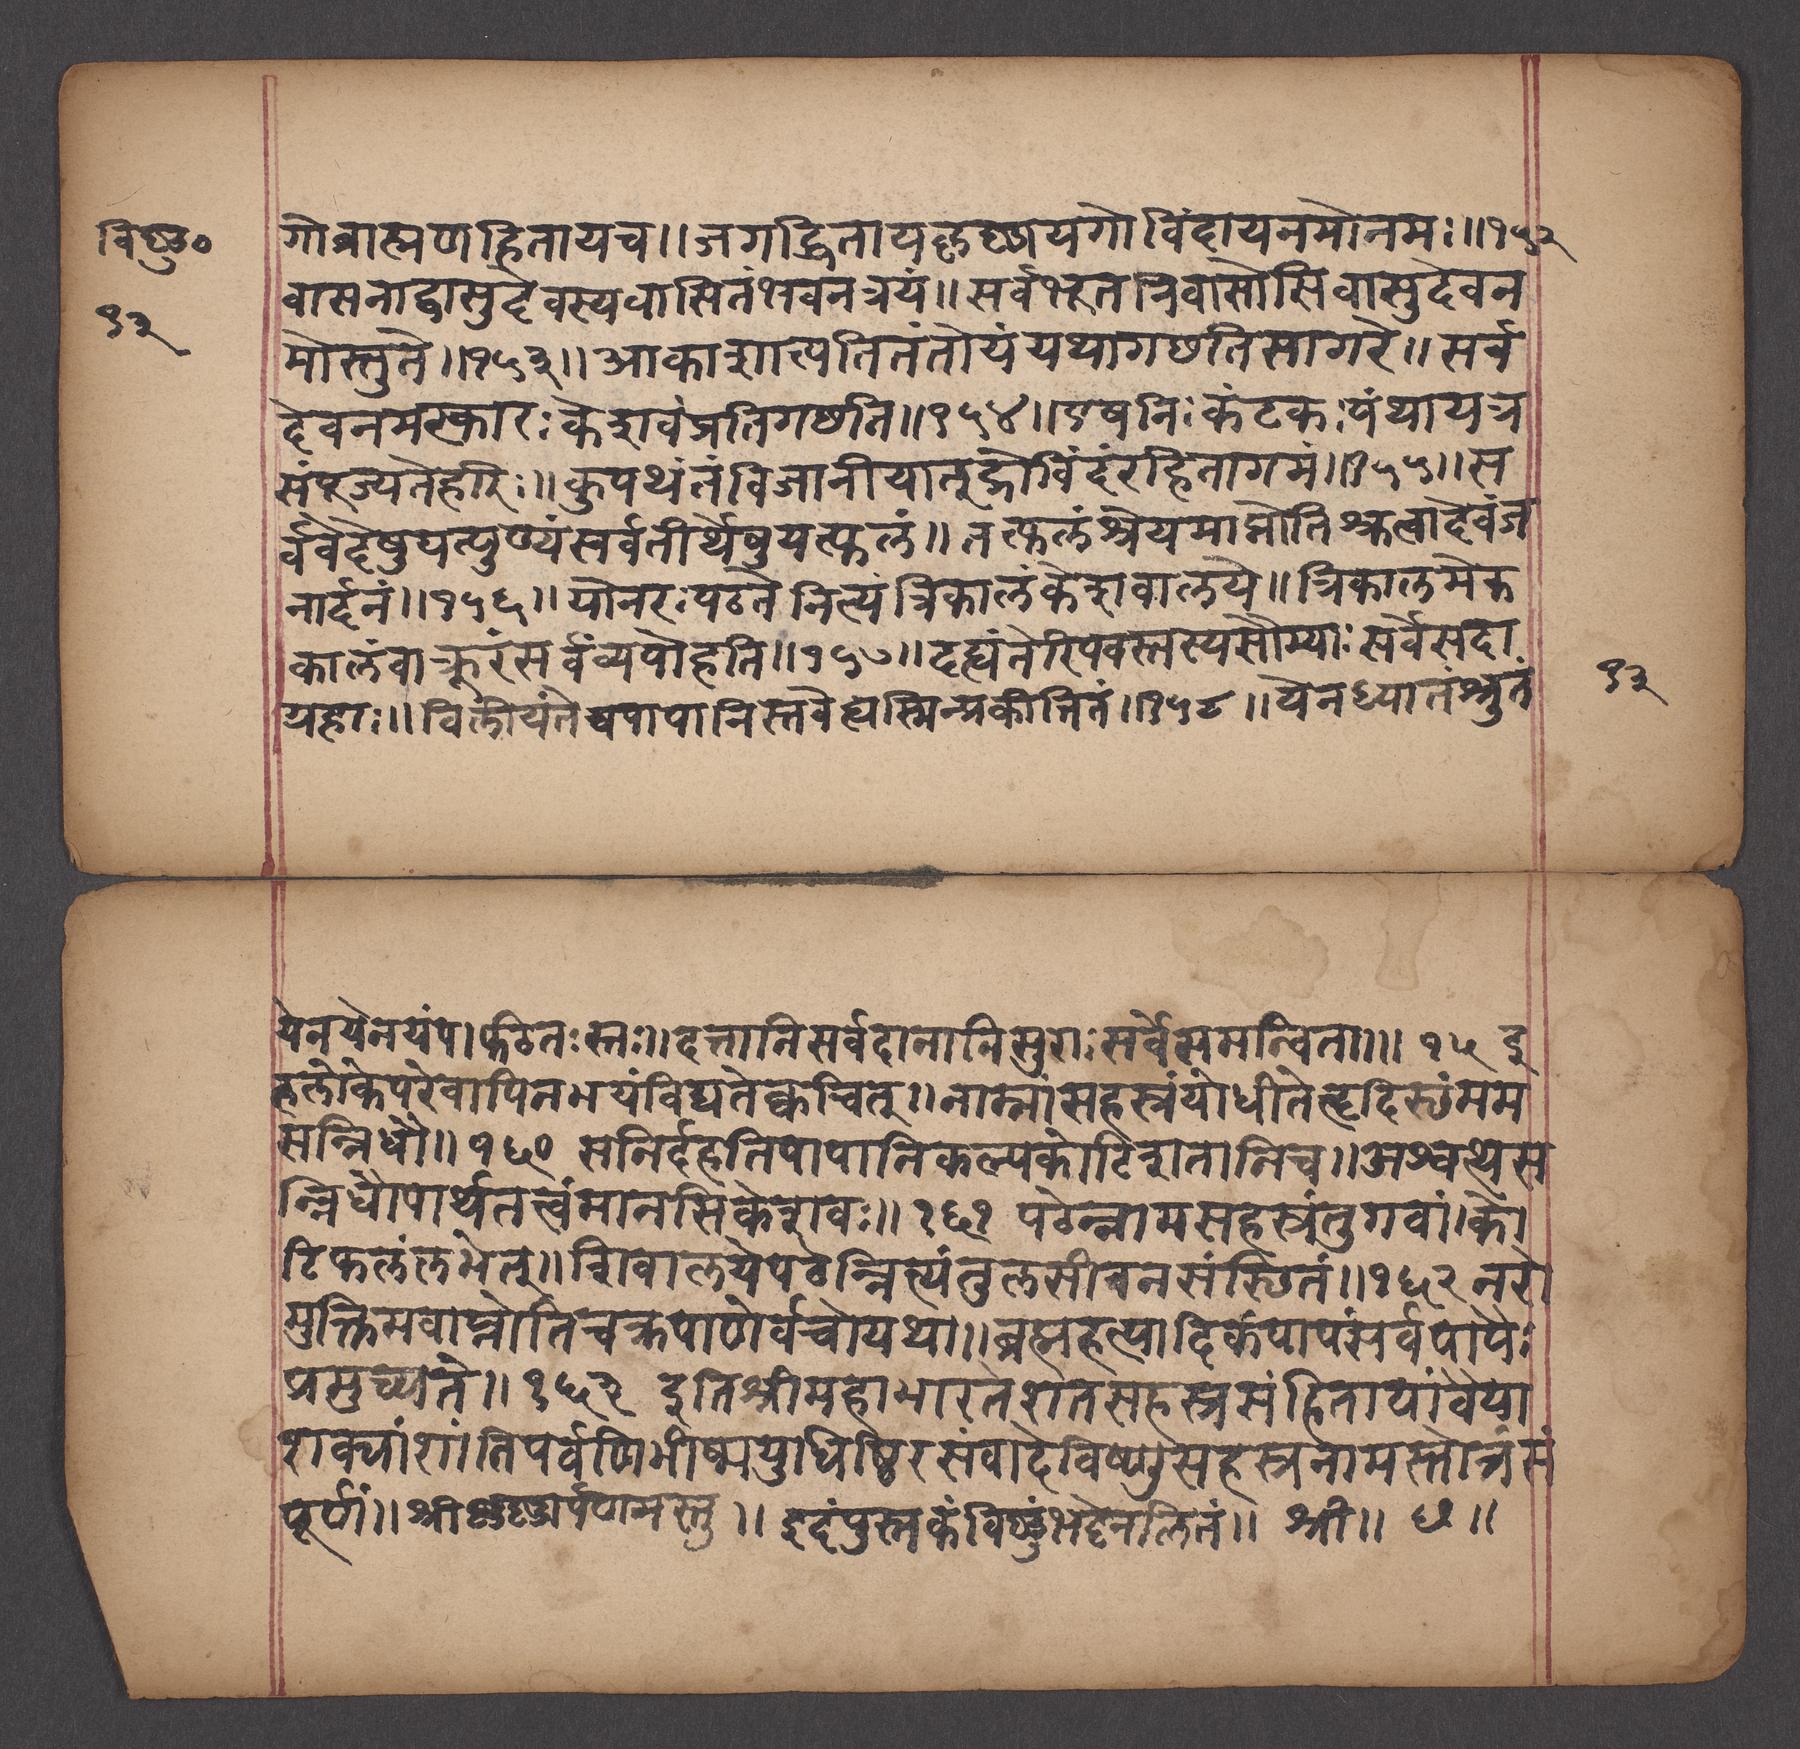 विष्णु०
१३
गोब्राह्मणहितायच॥जगद्धितायकृष्णायगोविंदायनमोनमः॥१५२
वासनाद्वासुदेवस्यवासितंभवनत्रयं॥सर्वभूतनिवासोसिवासुदेवन
मोस्तुते॥१५३॥आकाशात्पतितंतोयंयथागछतिसागरे॥सर्व
देवनमस्कारःकेशवंप्रतिगछति॥१५४॥एषनिःकंटकःपंथायत्र
संपूज्यतेहरिः॥कुपथंतंविजानीयात्गोविंदंरहितागमं॥१५५॥स
र्ववेदेषुयत्पुण्यंसर्वतीर्थेषुयत्फलं॥तत्फलंश्रेयमाप्नोतिश्रुत्वादेवंज
नार्दनं॥१५६॥योनरःपठतेनित्यंत्रिकालंकेशवालये॥त्रिकालमेक
कालंवाक्रूरंसर्वंव्यपोहति॥१५७॥दह्यंतेरिपवस्तस्यसौम्याःसर्वेसदा
ग्रहाः॥विलीयंतेचपापानिस्तवेह्यस्मिन्प्रकीर्तितं॥१५८॥येनध्यातंश्रुतं
१३
येनयेनयंपाठितःस्तः॥दत्तानिसर्वदानानिसुराःसर्वेसमन्विता॥॥१५ इ
हलोकेपरेवापिनभयंविद्यतेक्वचित्॥नाम्नांसहस्त्रंयोधीतेत्हृदिस्छंमम
सन्निधौ॥१६० सनिर्दहतिपापानिकल्पकोटिशतानिच॥अश्वत्थस
न्निधौपार्थतत्त्वंमानसिकेशवः॥१६१ पठेन्नामसहस्त्रंतुगवां।को
टिफलंलभेत्॥शिवालयेपठेन्नित्यंतुलसीवनसंस्छितं॥१६२ नरो
मुक्तिमवाप्नोतिचक्रपाणेर्वचोयथा॥ब्रह्महत्यादिकंपापंसर्वपापैः
प्रमुच्यते॥१६३ इतिश्रीमहाभारतेशतसहस्त्रसंहितायांवैया
शक्यांशांतिपर्वणिभीष्मयुधिष्ठिरसंवादेविष्णुसहस्त्रनामस्तोत्रंसं
पूर्णं॥श्रीकृष्णार्पणमस्तु॥ इदंपुस्तकंविष्णुंभट्टेनलितं॥ श्री॥ छ॥